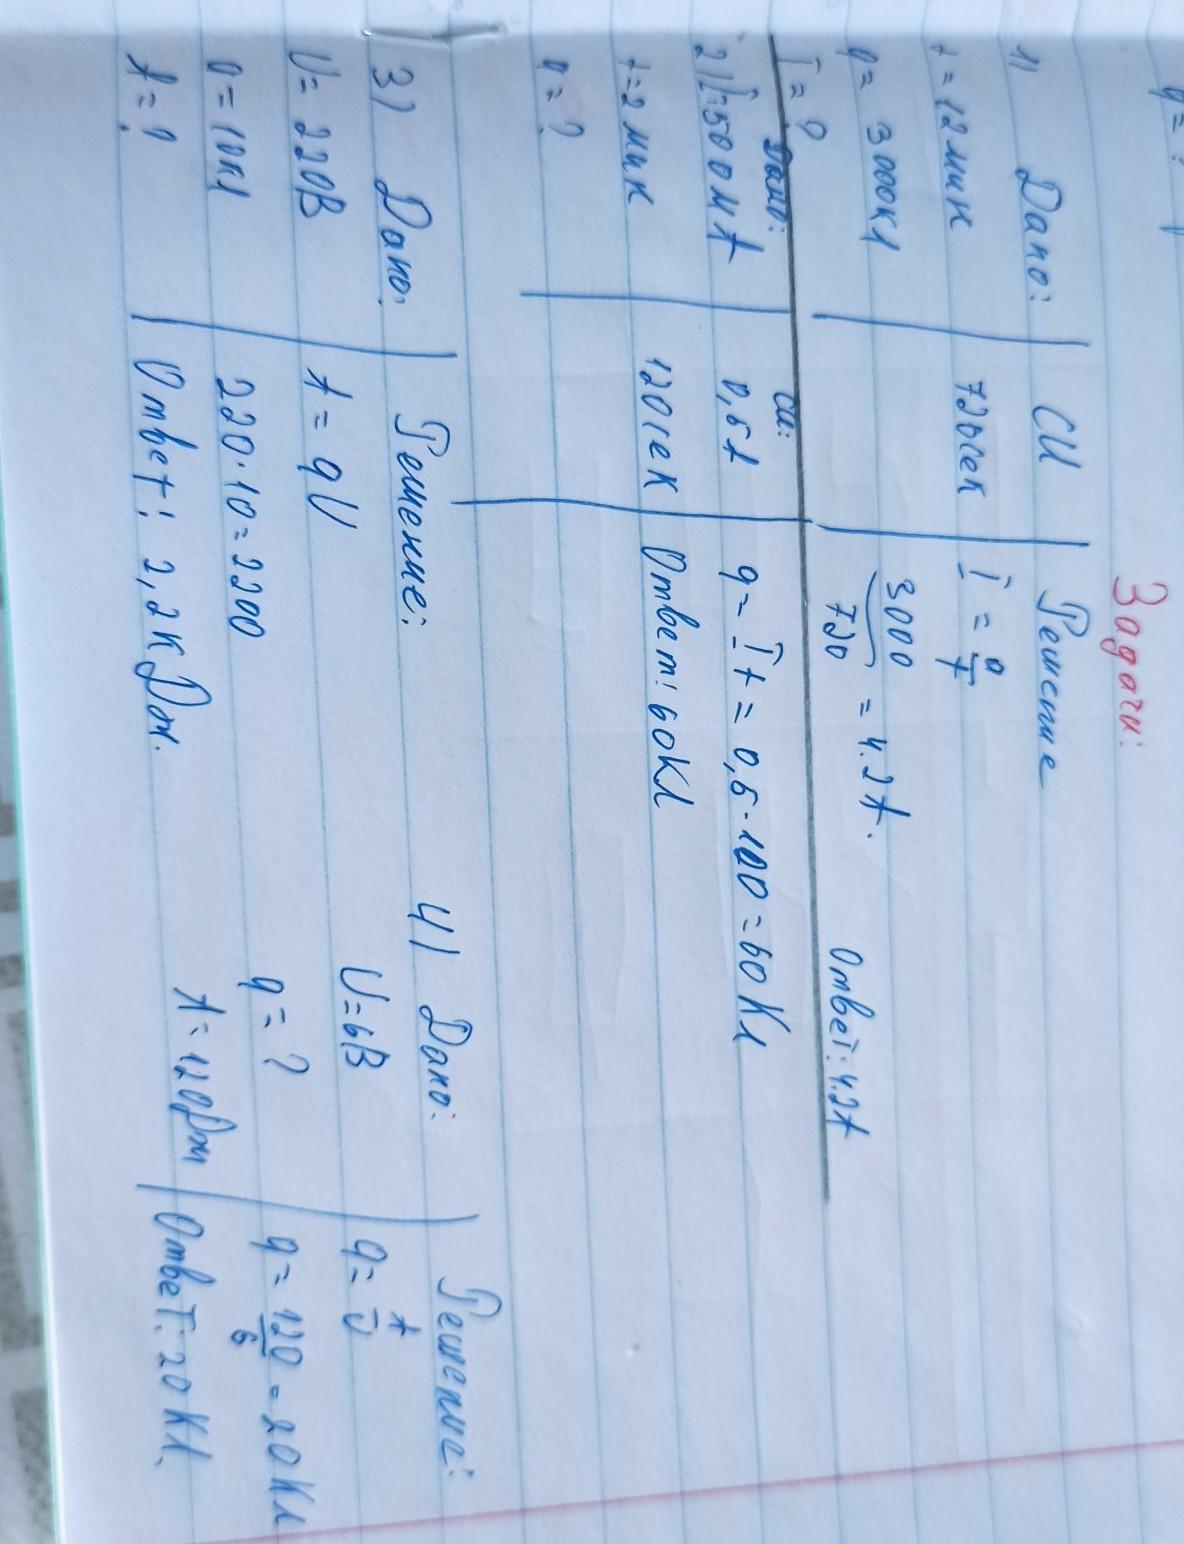 Задачи:
1) Дано: СИ Решение
t = 12 мин 720сек I = q/t
q = 3000Кл 3000/720 = 4.2А. Ответ: 4.2А
I = ?
Дано: СИ:
2) I=500мА 0,5А q = It = 0,5·120 = 60 Кл
t=2 мин 120сек Ответ: 60Кл
q = ?
3) Дано: Решение:
U= 220В A = qU
q=10Кл 220·10=2200
A=? Ответ: 2,2кДж.
4) Дано: Решение:
U=6В q= A/U
q=? q= 120/6 = 20 Кл
A=120Дж Ответ: 20 Кл.